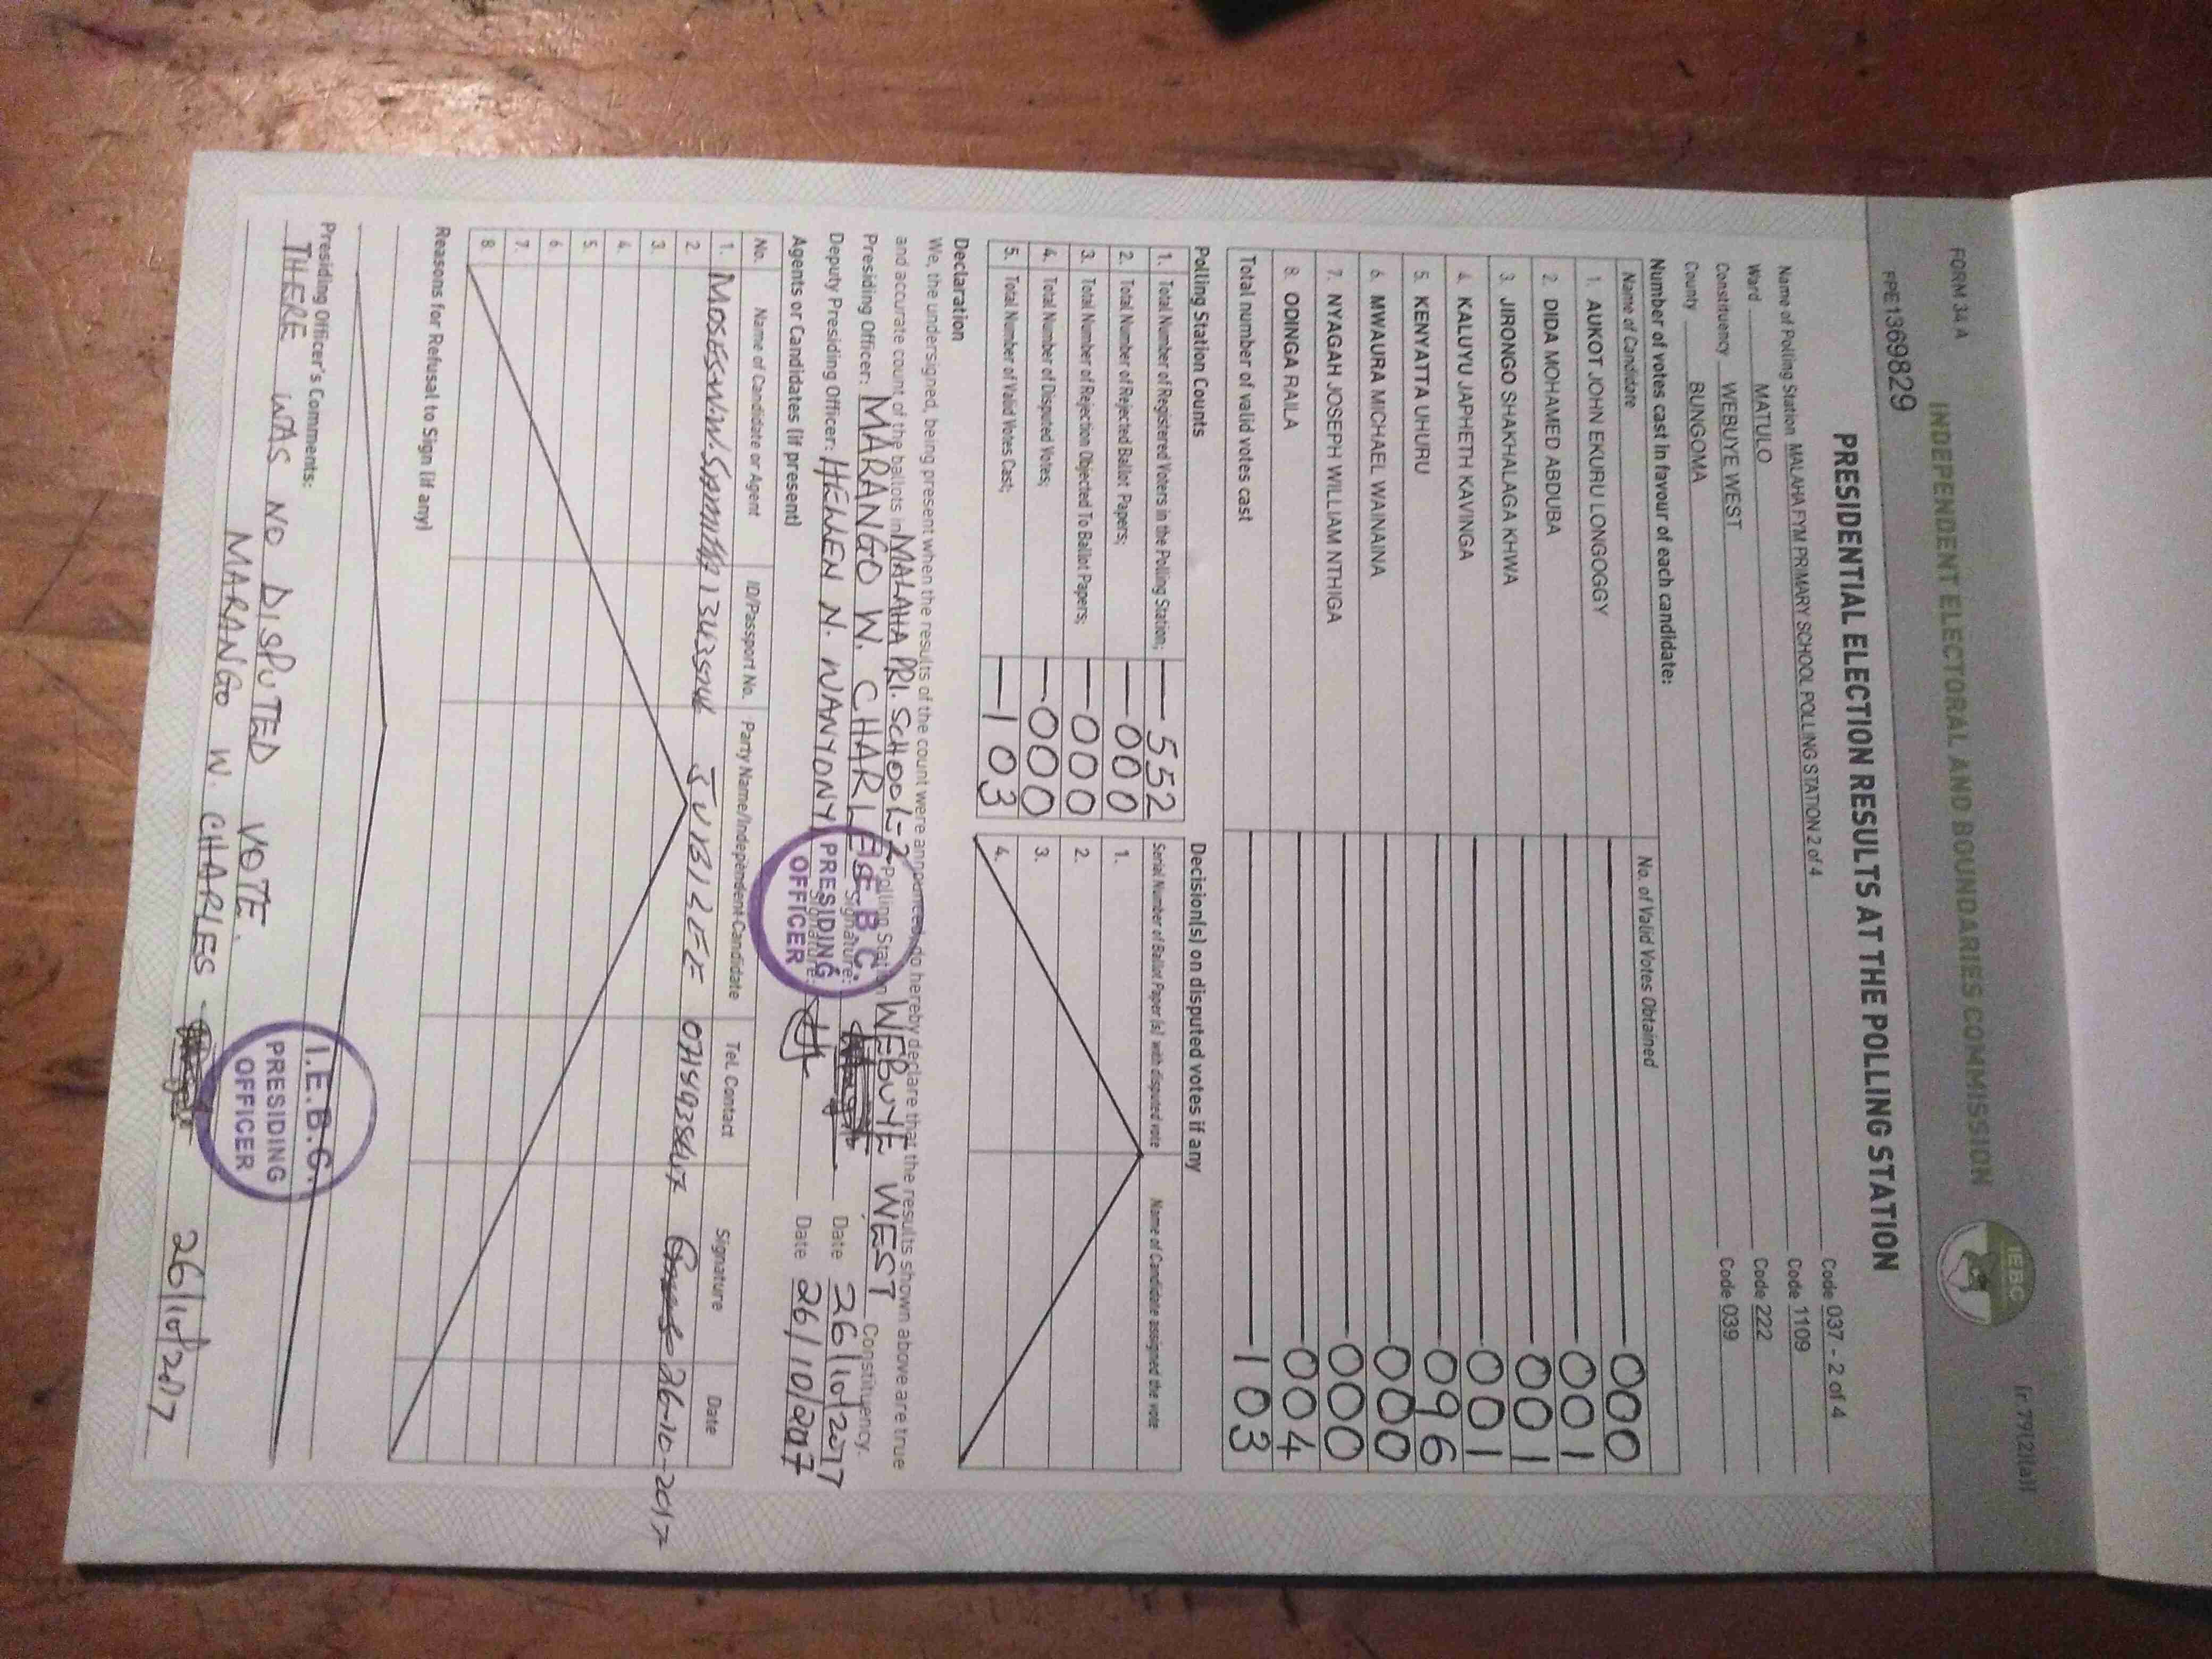 FORM 34 A
INDEPENDENT ELECTORAL AND BOUNDARIES COMMISSION
IEBC
[r.79(2)(a)]
PPE1369829
PRESIDENTIAL ELECTION RESULTS AT THE POLLING STATION
Name of Polling Station MALAHA FYM PRIMARY SCHOOL POLLING STATION 2 of 4 Code 037 - 2 of 4
Ward MATULO Code 1109
Constituency WEBUYE WEST Code 222
County BUNGOMA Code 039
Number of votes cast in favour of each candidate:
Name of Candidate No. of Valid Votes Obtained
1. AUKOT JOHN EKURU LONGOGGY 000
2. DIDA MOHAMED ABDUBA 001
3. JIRONGO SHAKHALAGA KHWA 001
4. KALUYU JAPHETH KAVINGA 001
5. KENYATTA UHURU 096
6. MWAURA MICHAEL WAINAINA 000
7. NYAGAH JOSEPH WILLIAM NTHIGA 000
8. ODINGA RAILA 004
Total number of valid votes cast 103
Polling Station Counts
1. Total Number of Registered Voters in the Polling Station; 552
2. Total Number of Rejected Ballot Papers; 000
3. Total Number of Rejection Objected To Ballot Papers; 000
4. Total Number of Disputed Votes; 000
5. Total Number of Valid Votes Cast; 103
Decision(s) on disputed votes if any
Serial Number of Ballot Paper (s) with disputed vote Name of Candidate assigned the vote
1.
2.
3.
4.
Declaration
We, the undersigned, being present when the results of the count were announced, do hereby declare that the results shown above are true
and accurate count of the ballots in MALAHA PRI. SCHOOL-2 Polling Station WEBUYE WEST Constituency.
Presiding Officer: MARANGO W. CHARLES Signature: Date 26/10/2017
Deputy Presiding Officer: HELLEN N. WANYONYI Signature: Date 26/10/2017
I.E.B.C.
PRESIDING
OFFICER
Agents or Candidates (if present)
No. Name of Candidate or Agent ID/Passport No. Party Name/Independent Candidate Tel. Contact Signature Date
1. MOSES JUBILEE 26-10-2017
2.
3.
4.
5.
6.
7.
8.
Reasons for Refusal to Sign (if any)
Presiding Officer's Comments:
THERE WAS NO DISPUTED VOTE.
MARANGO W. CHARLES 26/10/2017
I.E.B.C.
PRESIDING
OFFICER